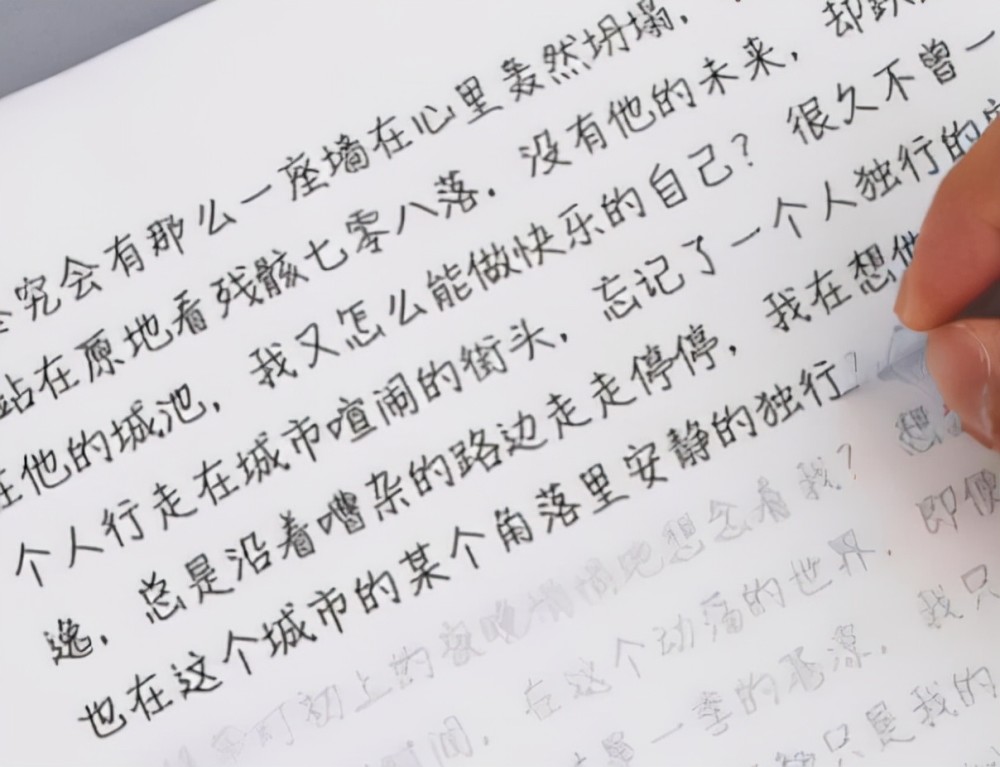 究会有那么一座墙在心里轰然坍塌.
站在原地看残骸七零八落.没有他的未来,却
在他的城池,我又怎么能做快乐的自己?很久不曾一
个人行走在城市喧闹的街头,忘记了一个人独行的
逸.总是沿着嘈杂的路边走走停停,我在想他
也在这个城市的某个角落里安静的独行?想
初上的夜晚悄悄地想念着我?即便
时间.在这个动荡的世界.我只
一季的
只是我的